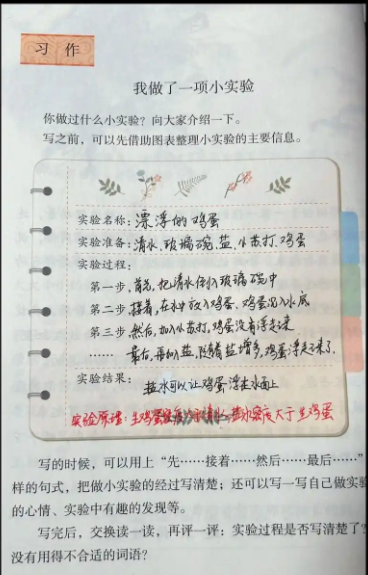 习 作
我做了一项小实验
你做过什么小实验？向大家介绍一下。
写之前，可以先借助图表整理小实验的主要信息。
实验名称：漂浮的鸡蛋
实验准备：清水、玻璃碗、盐、小苏打、鸡蛋
实验过程：
第一步，首先，把清水倒入玻璃碗中
第二步，接着，在水中放入鸡蛋，鸡蛋沉入水底
第三步，然后，加入小苏打，鸡蛋没有浮起来
…… 最后，再加入盐，随着盐增多，鸡蛋浮起来了。
实验结果：
盐水可以让鸡蛋浮在水面上
实验原理：生鸡蛋密度 盐水密度大于生鸡蛋
写的时候，可以用上“先……接着……然后……最后……”
样的句式，把做小实验的经过写清楚；还可以写一写自己做实验
的心情、实验中有趣的发现等。
写完后，交换读一读，再评一评：实验过程是否写清楚了？
没有用得不合适的词语？